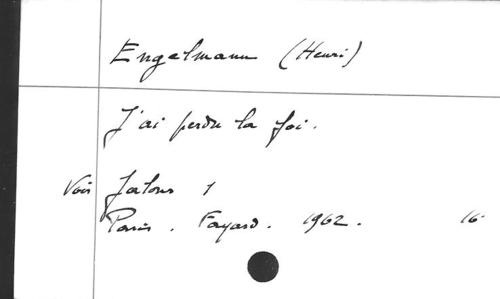 Engelmann (Henri)
J'ai perdu la foi.
Voir Jalons 1
Paris. Fayard. 1962. 16